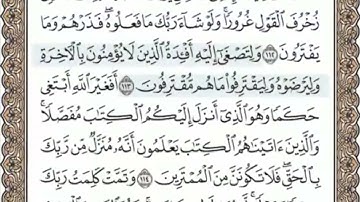 زُخْرُفَ ٱلْقَوْلِ غُرُورًا ۚ وَلَوْ شَآءَ رَبُّكَ مَا فَعَلُوهُ ۖ فَذَرْهُمْ وَمَا
يَفْتَرُونَ ١١٢ وَلِتَصْغَىٰٓ إِلَيْهِ أَفْـِٔدَةُ ٱلَّذِينَ لَا يُؤْمِنُونَ بِٱلْـَٔاخِرَةِ
وَلِيَرْضَوْهُ وَلِيَقْتَرِفُوا۟ مَا هُم مُّقْتَرِفُونَ ١١٣ أَفَغَيْرَ ٱللَّهِ أَبْتَغِى
حَكَمًا وَهُوَ ٱلَّذِىٓ أَنزَلَ إِلَيْكُمُ ٱلْكِتَٰبَ مُفَصَّلًا ۚ
وَٱلَّذِينَ ءَاتَيْنَٰهُمُ ٱلْكِتَٰبَ يَعْلَمُونَ أَنَّهُۥ مُنَزَّلٌ مِّن رَّبِّكَ
بِٱلْحَقِّ ۖ فَلَا تَكُونَنَّ مِنَ ٱلْمُمْتَرِينَ ١١٤ وَتَمَّتْ كَلِمَتُ رَبِّكَ